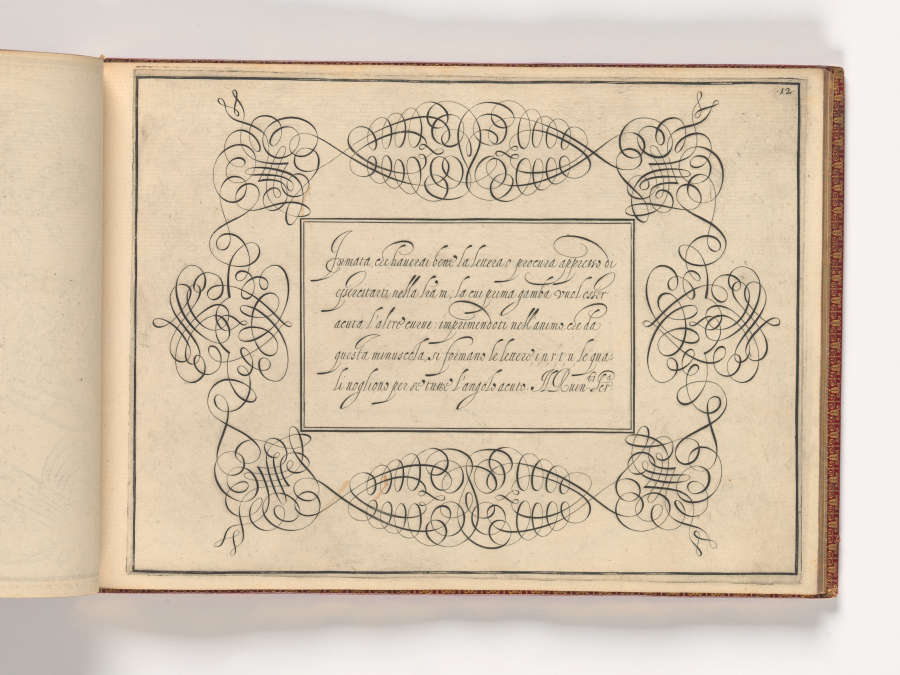 12
Formata, che haverai bene la lettera o procura appresso di
essercitarti nella lra m, la cui prima gamba vuol esser
acuta l'altre curve imprimendoti nell'animo, che da
questa minuscola si formano le lettere, i, n, r, t, u le qua-
li vogliono per se tutte l'angolo acuto.